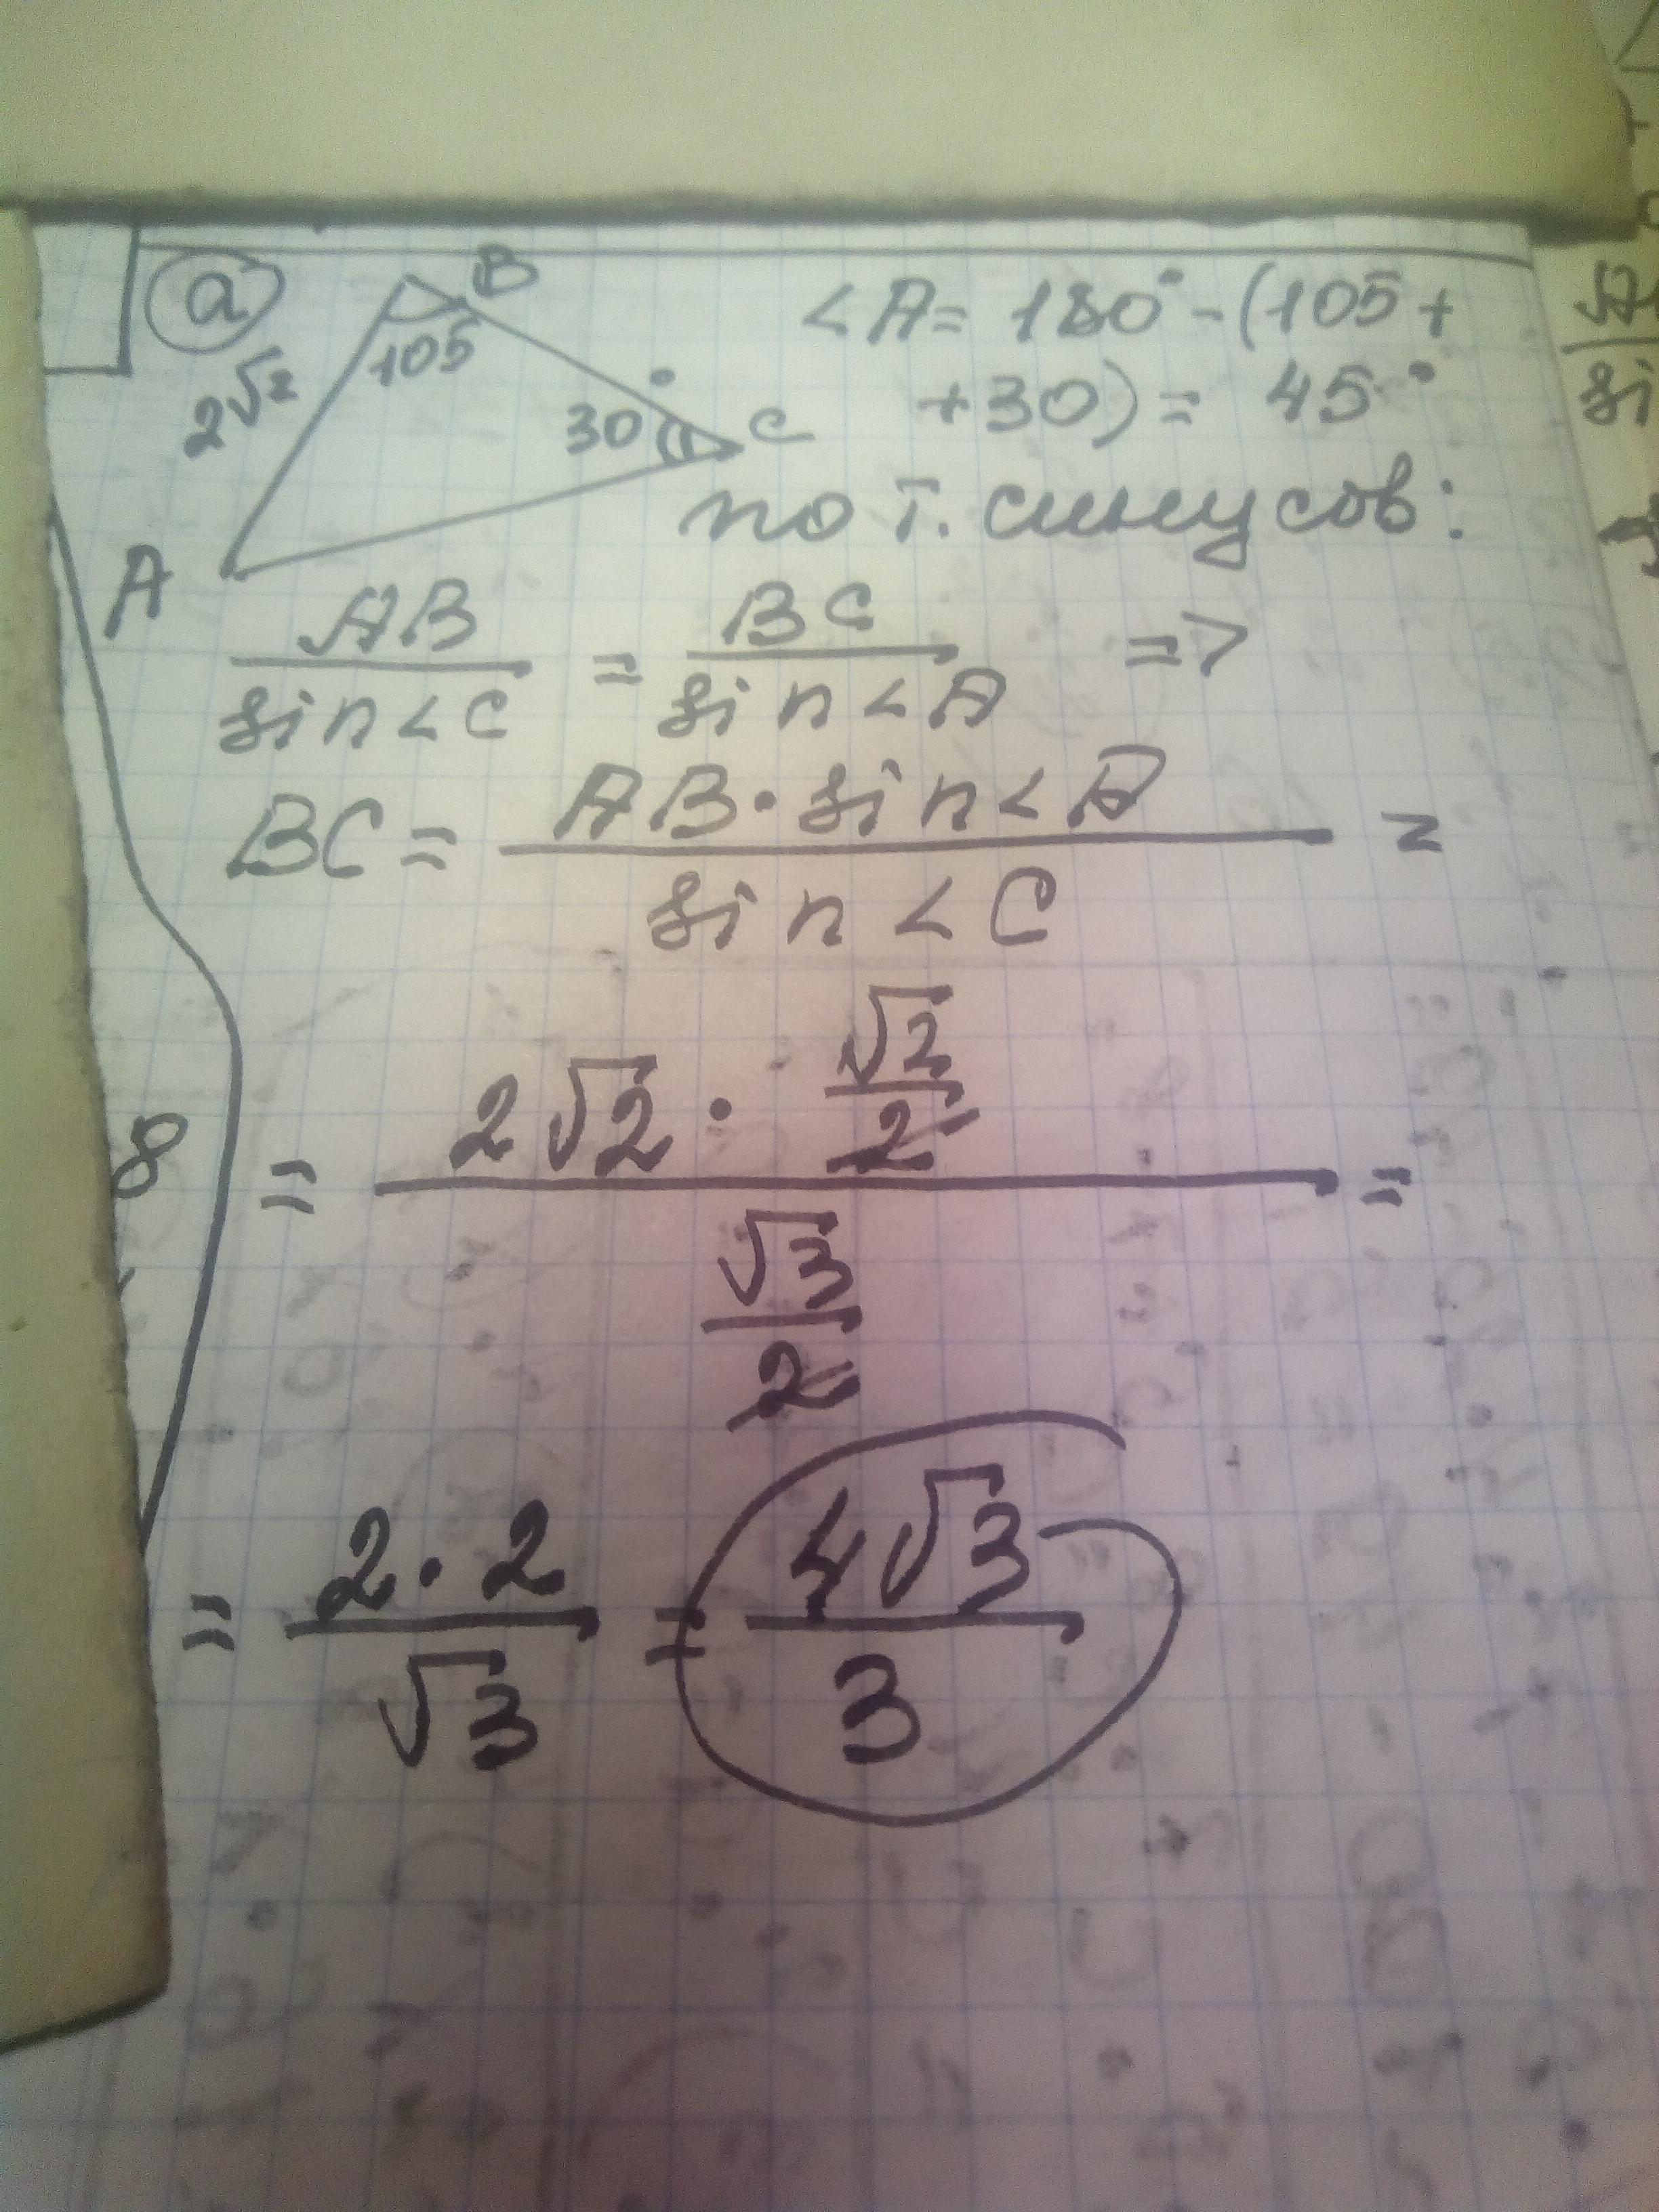 а
B
105
2√2
30°
C
A
<A = 180° - (105 +
+ 30) = 45°
по т. синусов:
AB / sin<C = BC / sin<A =>
BC = AB · sin<A / sin<C =
= 2√2 · √2/2 / √3/2 =
= 2·2 / √3 = 4√3 / 3
8